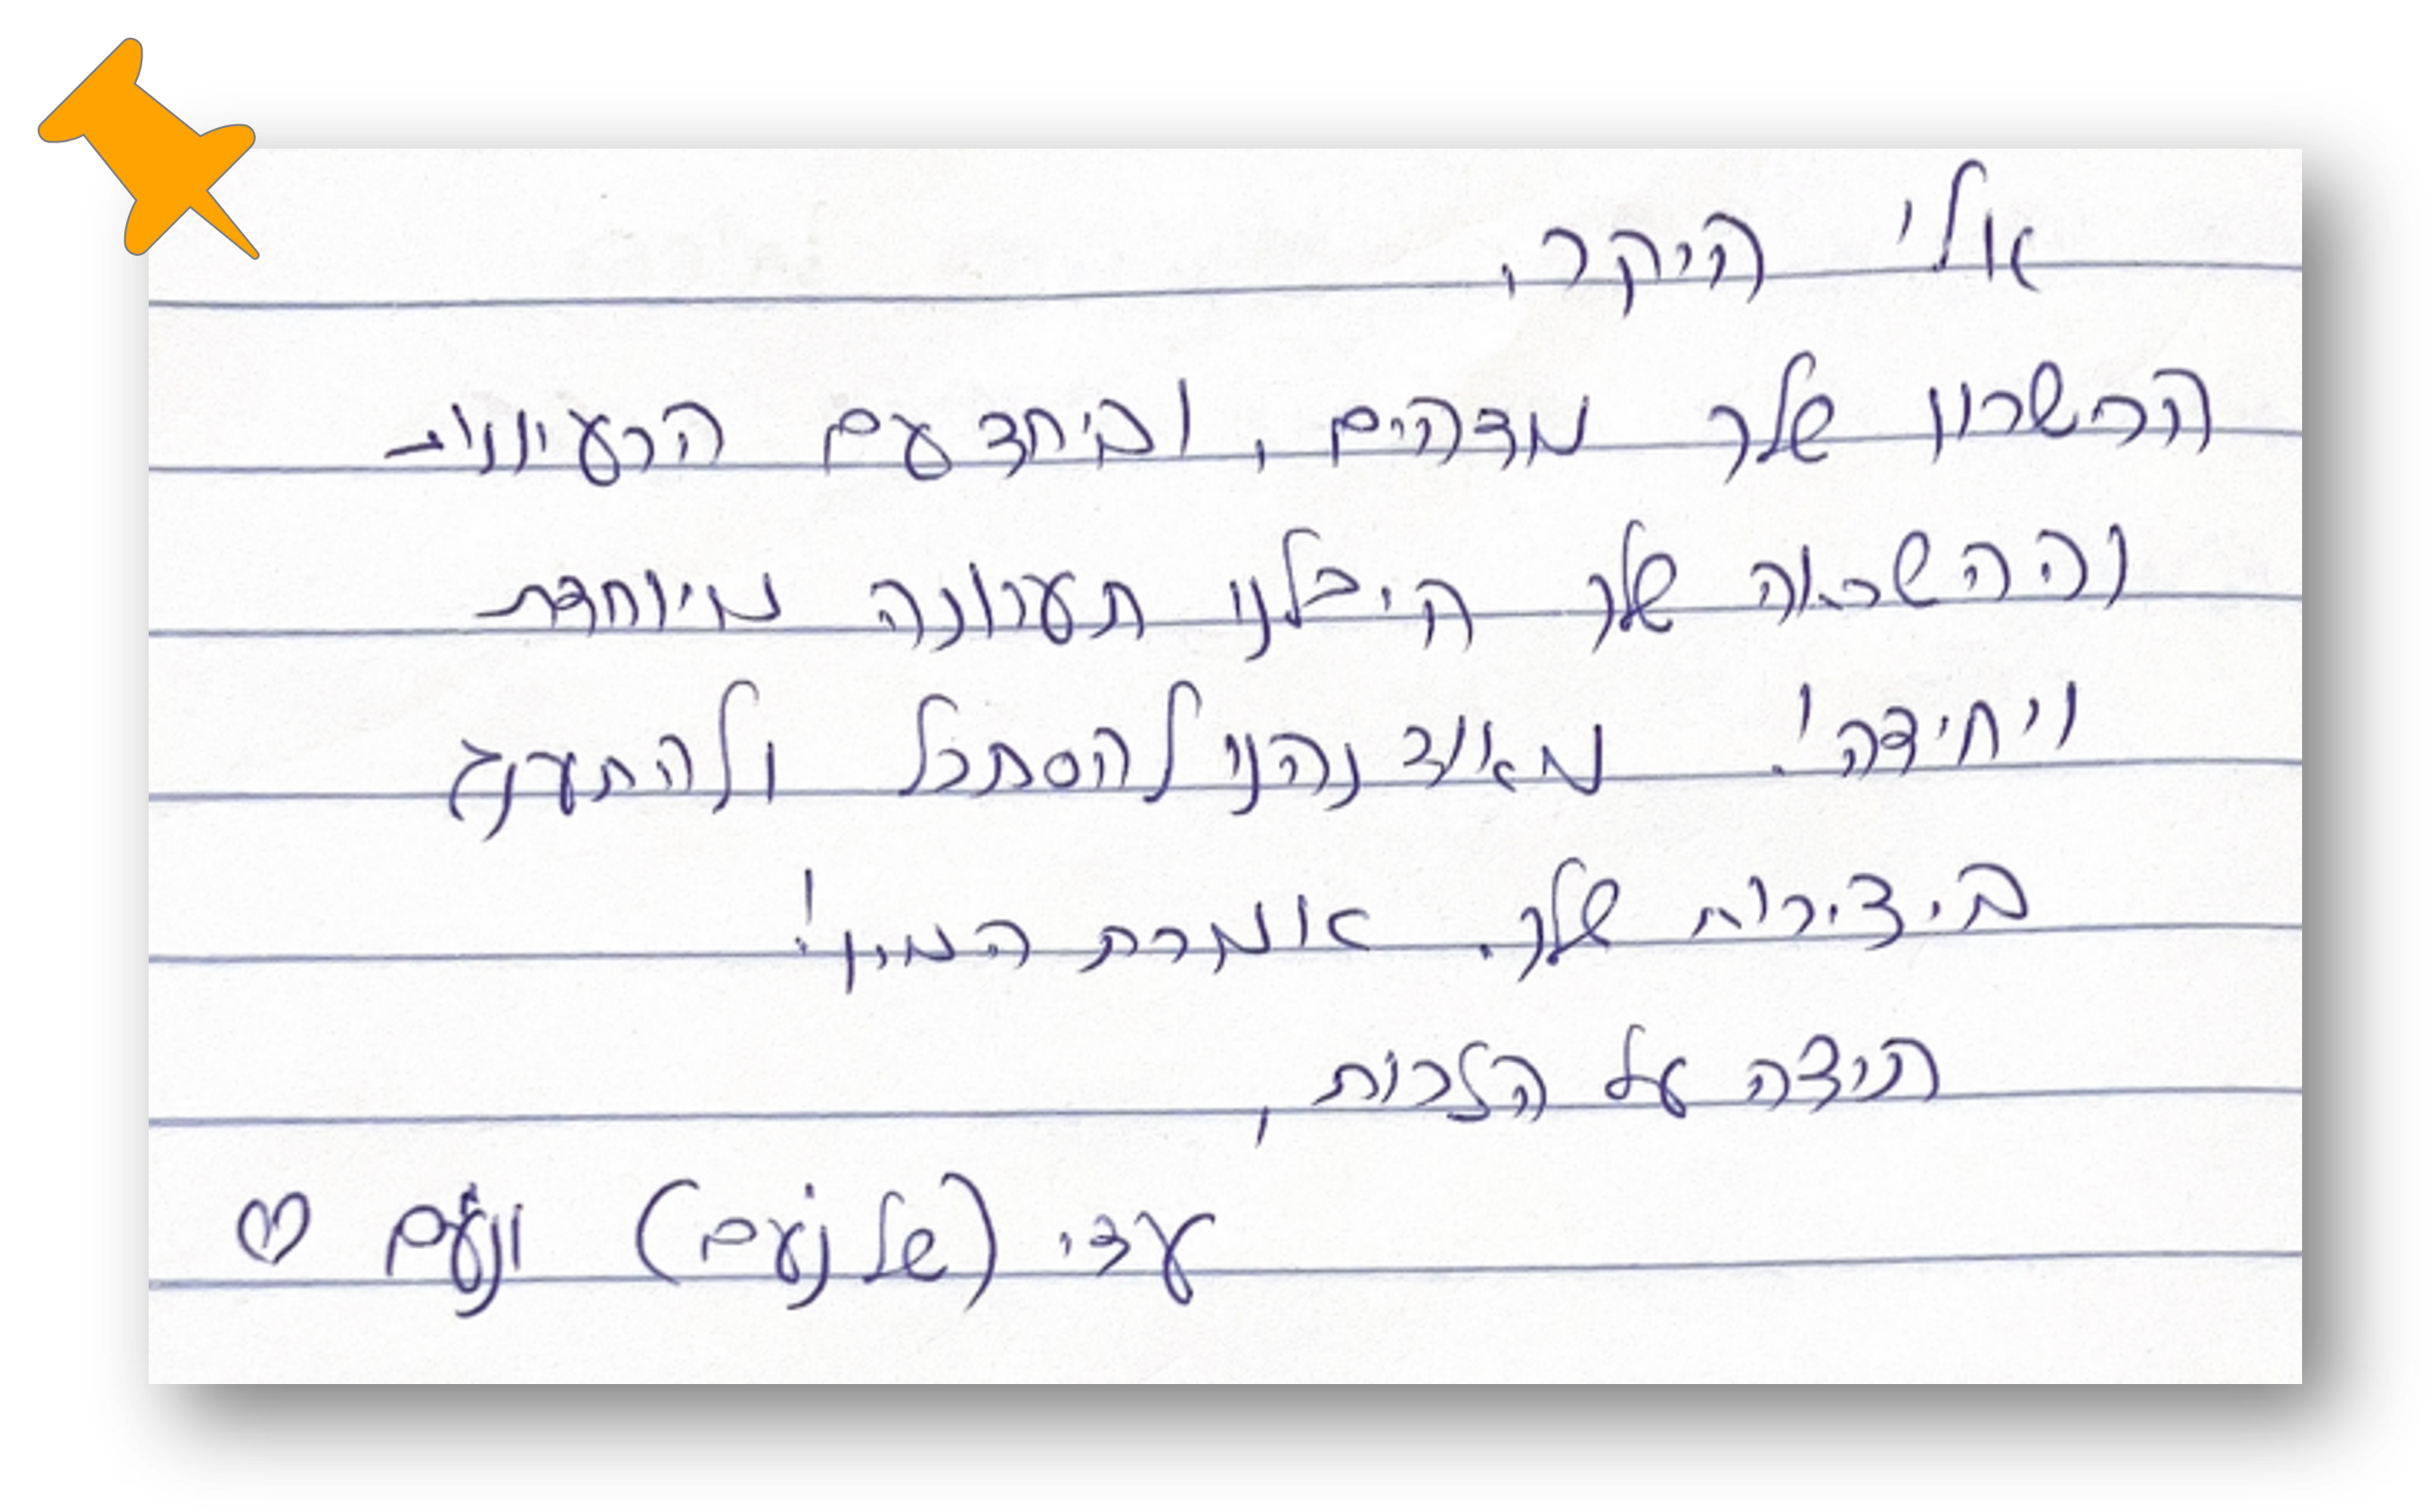 אולי היקר,
הכשרון שלך מדהים, וביחד עם הרעיונות
וההשראה שלך היבלנו תערוגה מיוחדת
ויחידה! מאוד נהנו להסתכל ולהתענג
ביצירות שלך. אומרת המון!
תודה על הזכות,
עדי (של נעם) ונעם ♡